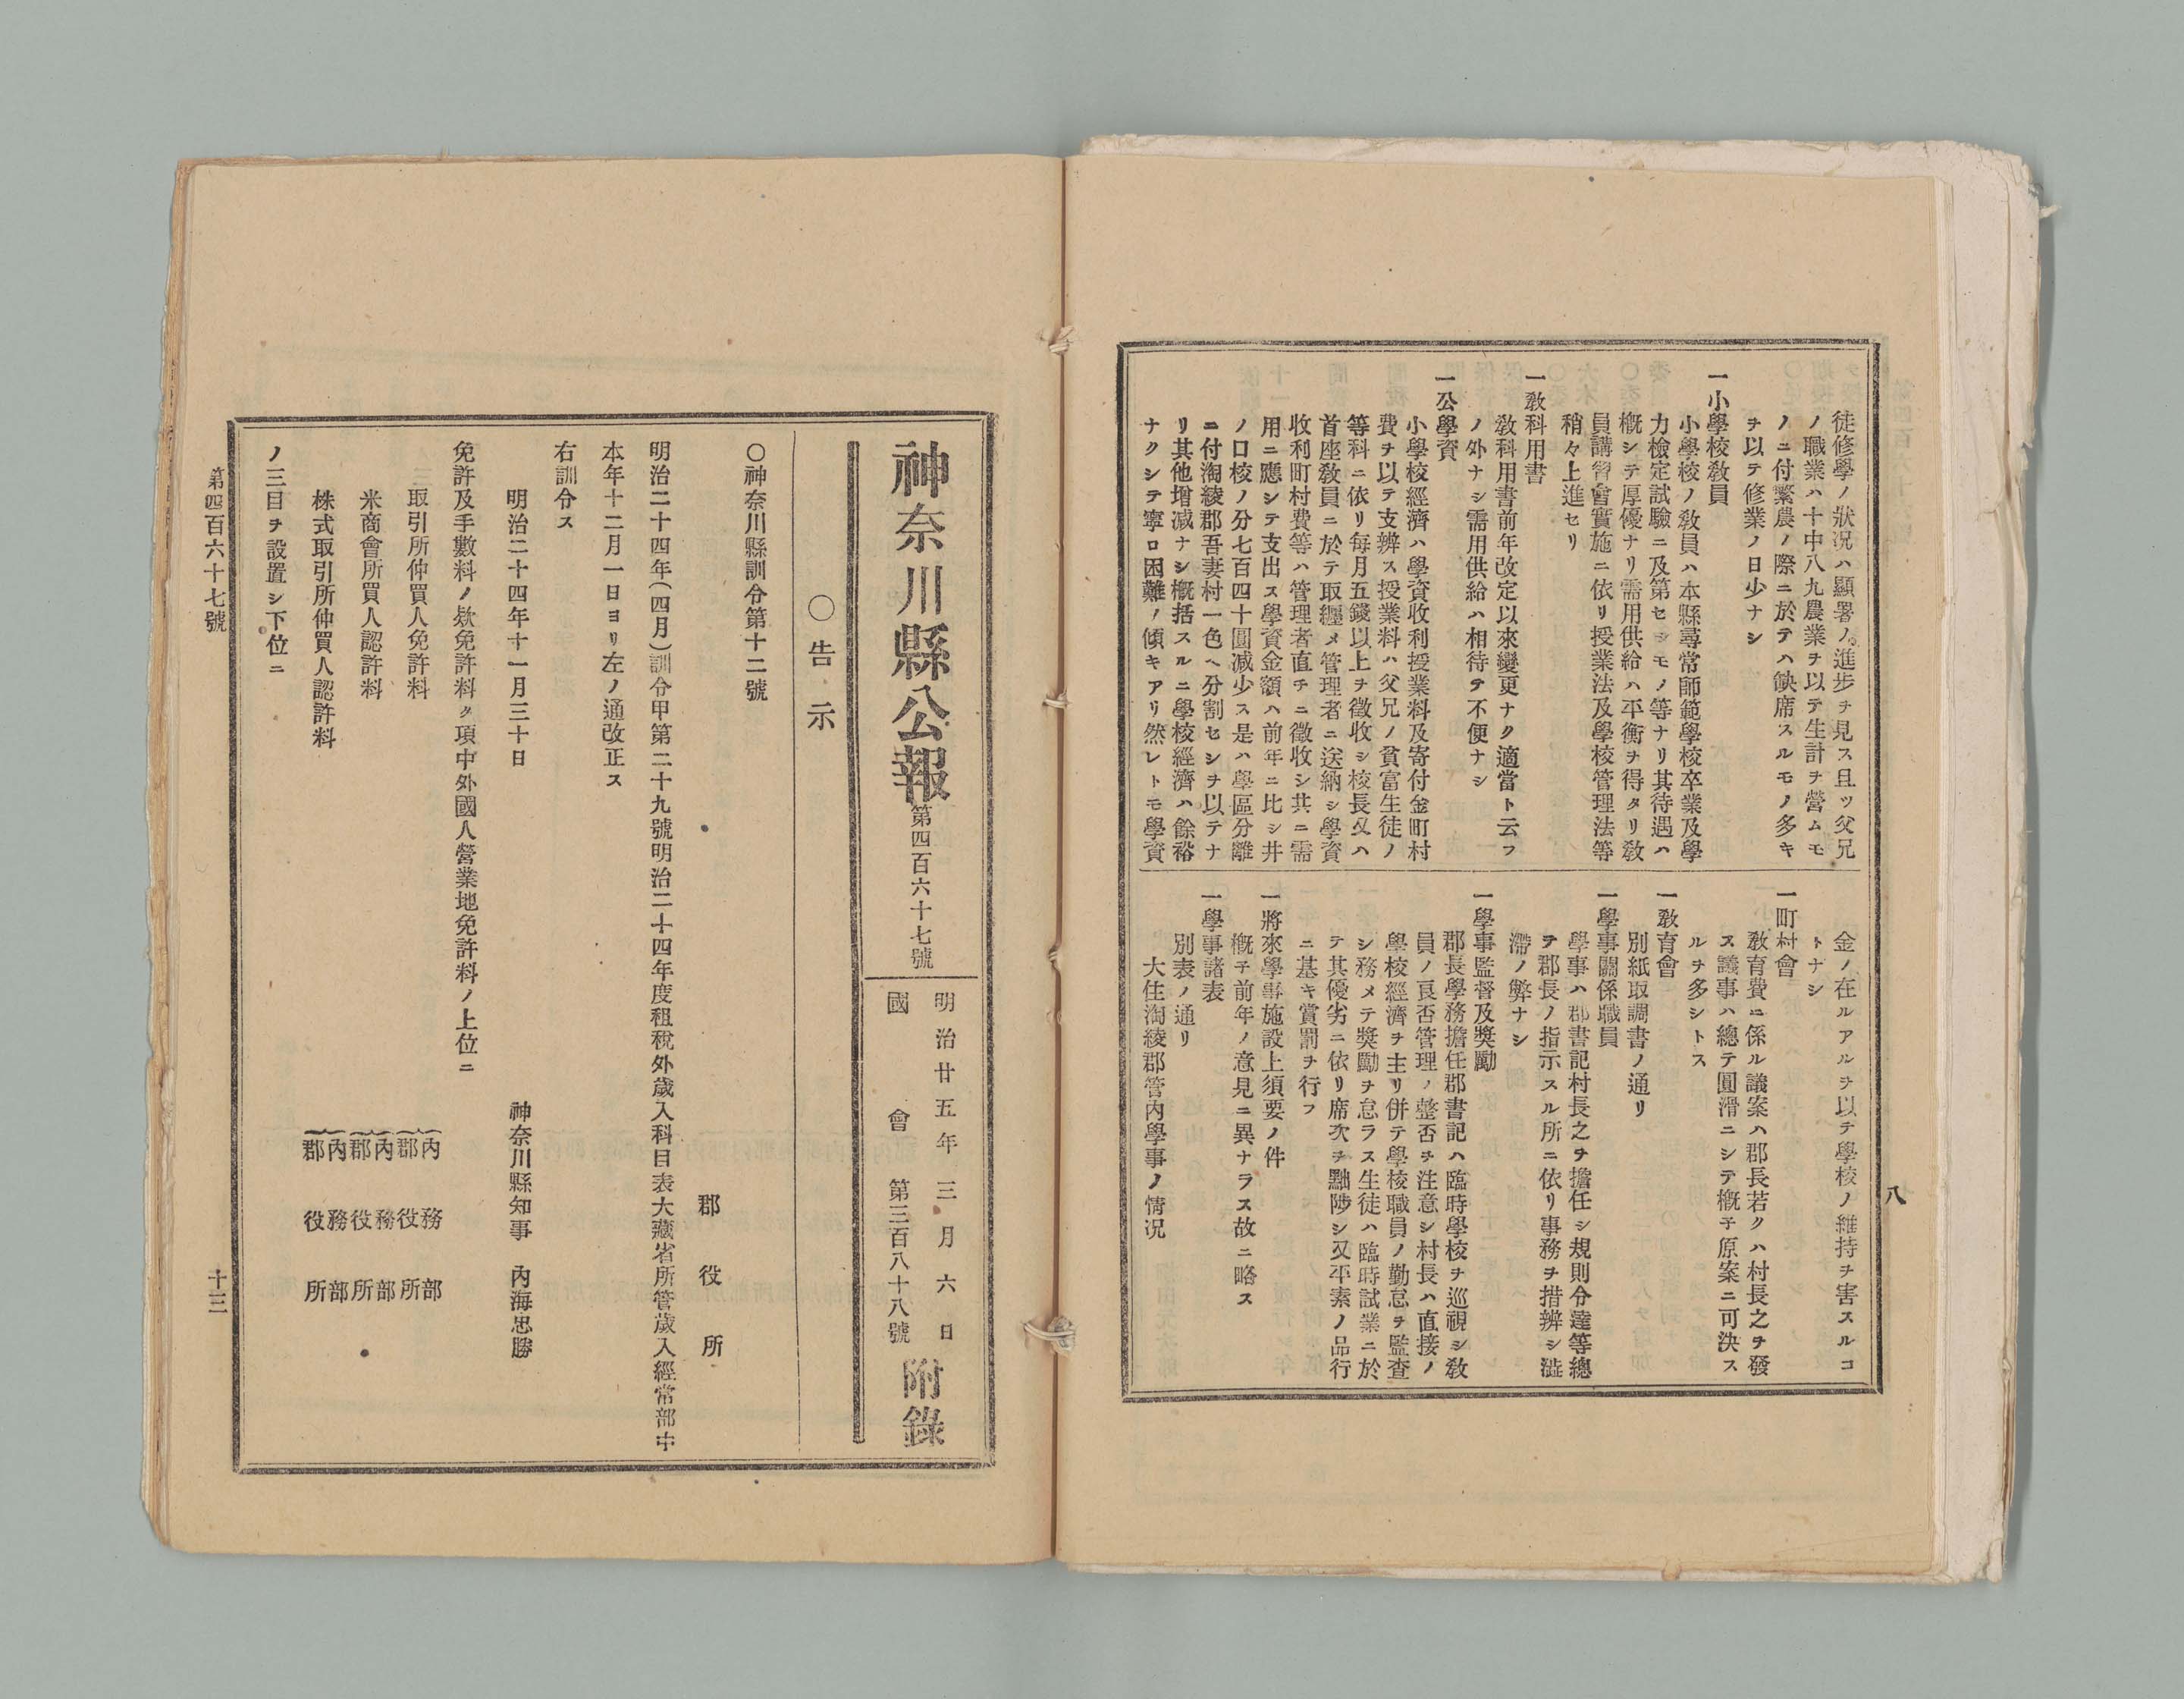 八
徒修學ノ狀況ハ顯署ノ進步ヲ見ス且ツ父兄
ノ職業ハ十中八九農業ヲ以テ生計ヲ營ムモ
ノニ付繁農ノ際ニ於テハ缺席スルモノ多キ
ヲ以テ修業ノ日少ナシ
一小學校敎員
小學校ノ敎員ハ本縣尋常師範學校卒業及學
力檢定試驗ニ及第セシモノ等ナリ其待遇ハ
槪シテ厚優ナリ需用供給ハ平衡ヲ得タリ敎
員講習會實施ニ依リ授業法及學校管理法等
稍々上進セリ
一敎科用書
敎科用書前年改定以來變更ナク適當ト云フ
ノ外ナシ需用供給ハ相待テ不便ナシ
一公學資
小學校經濟ハ學資收利授業料及寄付金町村
費ヲ以テ支辨ス授業料ハ父兄ノ貧富生徒ノ
等科ニ依リ每月五錢以上ヲ徵收シ校長又ハ
首座敎員ニ於テ取纒メ管理者ニ送納シ學資
收利町村費等ハ管理者直チニ徵收シ共ニ需
用ニ應シテ支出ス學資金額ハ前年ニ比シ井
ノ口校ノ分七百四十圓减少ス是ハ學區分離
ニ付淘綾郡吾妻村一色ヘ分割セシヲ以テナ
リ其他增减ナシ槪括スルニ學校經濟ハ餘裕
ナクシテ寧ロ困難ノ傾キアリ然レトモ學資
金ノ在ルアルヲ以テ學校ノ維持ヲ害スルコ
トナシ
一町村會
敎育費ニ係ル議案ハ郡長若クハ村長之ヲ發
ス議事ハ總テ圓滑ニシテ槪子原案ニ可決ス
ルヲ多シトス
一敎育會
別紙取調書ノ通リ
一學事關係職員
學事ハ郡書記村長之ヲ擔任シ規則令達等總
テ郡長ノ指示スル所ニ依リ事務ヲ措辨シ澁
滯ノ弊ナシ
一學事監督及獎勵
郡長學務擔任郡書記ハ臨時學校ヲ巡視シ敎
員ノ良否管理ノ整否ヲ注意シ村長ハ直接ノ
學校經濟ヲ主リ併テ學校職員ノ勤怠ヲ監査
シ務メテ獎勵ヲ怠ラス生徒ハ臨時試業ニ於
テ其優劣ニ依リ席次ヲ黜陟シ又平素ノ品行
ニ基キ賞罰ヲ行フ
一將來學事施設上須要ノ件
槪子前年ノ意見ニ異ナラス故ニ略ス
一學事諸表
別表ノ通リ
大住淘綾郡管內學事ノ情況
神奈川縣公報第四百六十七號
明治廿五年三月六日
國會第三百八十八號
附錄
〇告示
〇神奈川縣訓令第十二號
郡役所
明治二十四年(四月)訓令甲第二十九號明治二十四年度租稅外歲入科目表大藏省所管歲入經常部中
本年十二月一日ヨリ左ノ通改正ス
右訓令ス
明治二十四年十一月三十日
神奈川縣知事 內海忠勝
免許及手數料ノ欵免許料ノ項中外國人營業地免許料ノ上位ニ
取引所仲買人免許料 內務部 郡役所
米商會所買人認許料 內務部 郡役所
株式取引所仲買人認許料 內務部 郡役所
ノ三目ヲ設置シ下位ニ
第四百六十七號
十三